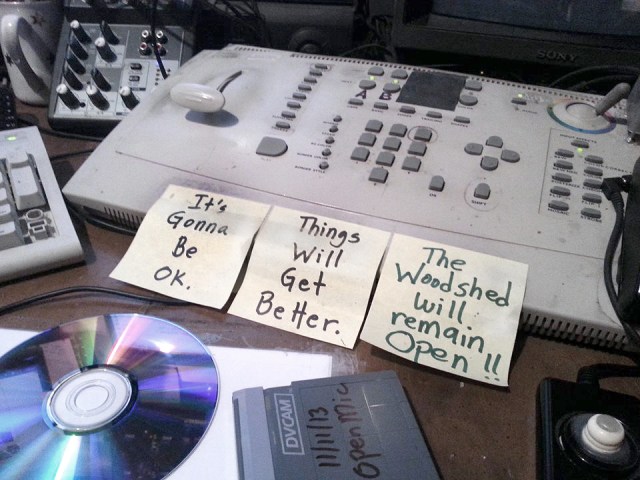 SONY
It's
Gonna
Be
OK.
Things
Will
Get
Better.
The
Woodshed
will
remain
Open!!
DVCAM
11/11/13
Open Mic